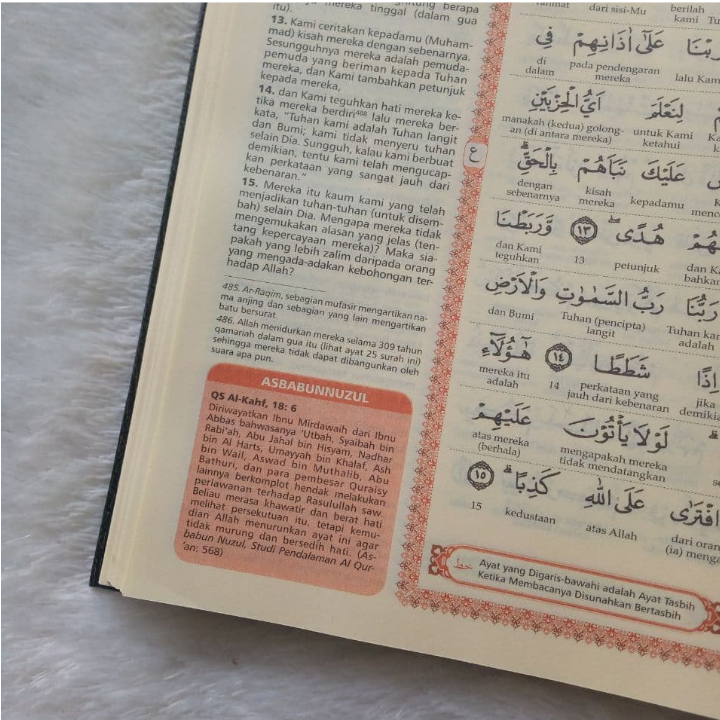 itu).
mereka tinggal (dalam gua
13. Kami ceritakan kepadamu (Muham-
mad) kisah mereka dengan sebenarnya.
Sesungguhnya mereka adalah pemuda-
pemuda yang beriman kepada Tuhan
mereka, dan Kami tambahkan petunjuk
kepada mereka,
14. dan Kami teguhkan hati mereka ke-
tika mereka berdiri lalu mereka ber-
kata, "Tuhan kami adalah Tuhan langit
dan Bumi; kami tidak menyeru tuhan
selain Dia. Sungguh, kalau kami berbuat
demikian, tentu kami telah mengucap-
kan perkataan yang sangat jauh dari
kebenaran."
15. Mereka itu kaum kami yang telah
menjadikan tuhan-tuhan (untuk disem-
bah) selain Dia. Mengapa mereka tidak
mengemukakan alasan yang jelas (ten-
tang kepercayaan mereka)? Maka sia-
pakah yang lebih zalim daripada orang
yang mengada-adakan kebohongan ter-
hadap Allah?
485. Ar-Raqim, sebagian mufasir mengartikan na-
ma anjing dan sebagian yang lain mengartikan
batu bersurat.
486. Allah menidurkan mereka selama 309 tahun
qamariah dalam gua itu (lihat ayat 25 surah ini)
sehingga mereka tidak dapat dibangunkan oleh
suara apa pun.
ASBABUNNUZUL
QS Al-Kahf, 18: 6
Diriwayatkan Ibnu Mirdawaih dari Ibnu
Abbas bahwasanya 'Utbah, Syaibah bin
Rabi'ah, Abu Jahal bin Hisyam, Nadhar
bin Al Harts, Umayyah bin Khalaf, Ash
bin Wail, Aswad bin Muthalib, Abu
Bathuri, dan para pembesar Quraisy
lainnya berkomplot hendak melakukan
perlawanan terhadap Rasulullah saw.
Beliau merasa khawatir dan berat hati
melihat persekutuan itu, tetapi kemu-
dian Allah menurunkan ayat ini agar
tidak murung dan bersedih hati. (As-
babun Nuzul, Studi Pendalaman Al Qur-
'an: 568)
dari sisi-Mu berilah
kami
رَبَّنَا عَلَىٰٓ اٰذَانِهِمْ فِى
lalu Kam pada pendengaran di
mereka dalam
لِنَعْلَمَ اَيُّ الْحِزْبَيْنِ
untuk Kami manakah (kedua) golong-
ketahui an (di antara mereka)
ع
عَلَيْكَ نَبَاَهُمْ بِالْحَقِّۗ
kepadamu kisah dengan
mereka sebenarnya
هُدًىۖ ١٣ وَّرَبَطْنَا
petunjuk 13 dan Kami
bahkan teguhkan
رَبُّنَا رَبُّ السَّمٰوٰتِ وَالْاَرْضِ
Tuhan kam Tuhan (pencipta) dan Bumi
adalah langit
اِذًا شَطَطًا ١٤ هٰٓؤُلَاۤءِ
jika perkataan yang 14 mereka itu
demikia jauh dari kebenaran adalah
لَوْلَا يَأْتُوْنَ عَلَيْهِمْ
mengapakah mereka atas mereka
tidak mendatangkan (berhala)
افْتَرٰى عَلَى اللّٰهِ كَذِبًاۗ ١٥
dari oran atas Allah kedustaan 15
(ia) menga
Ayat yang Digaris-bawahi adalah Ayat Tasbih
Ketika Membacanya Disunahkan Bertasbih